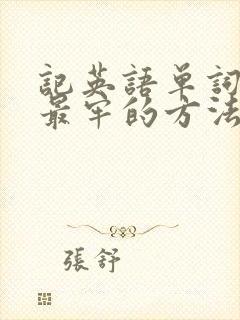 記英語单詞
最牢的方法
張舒